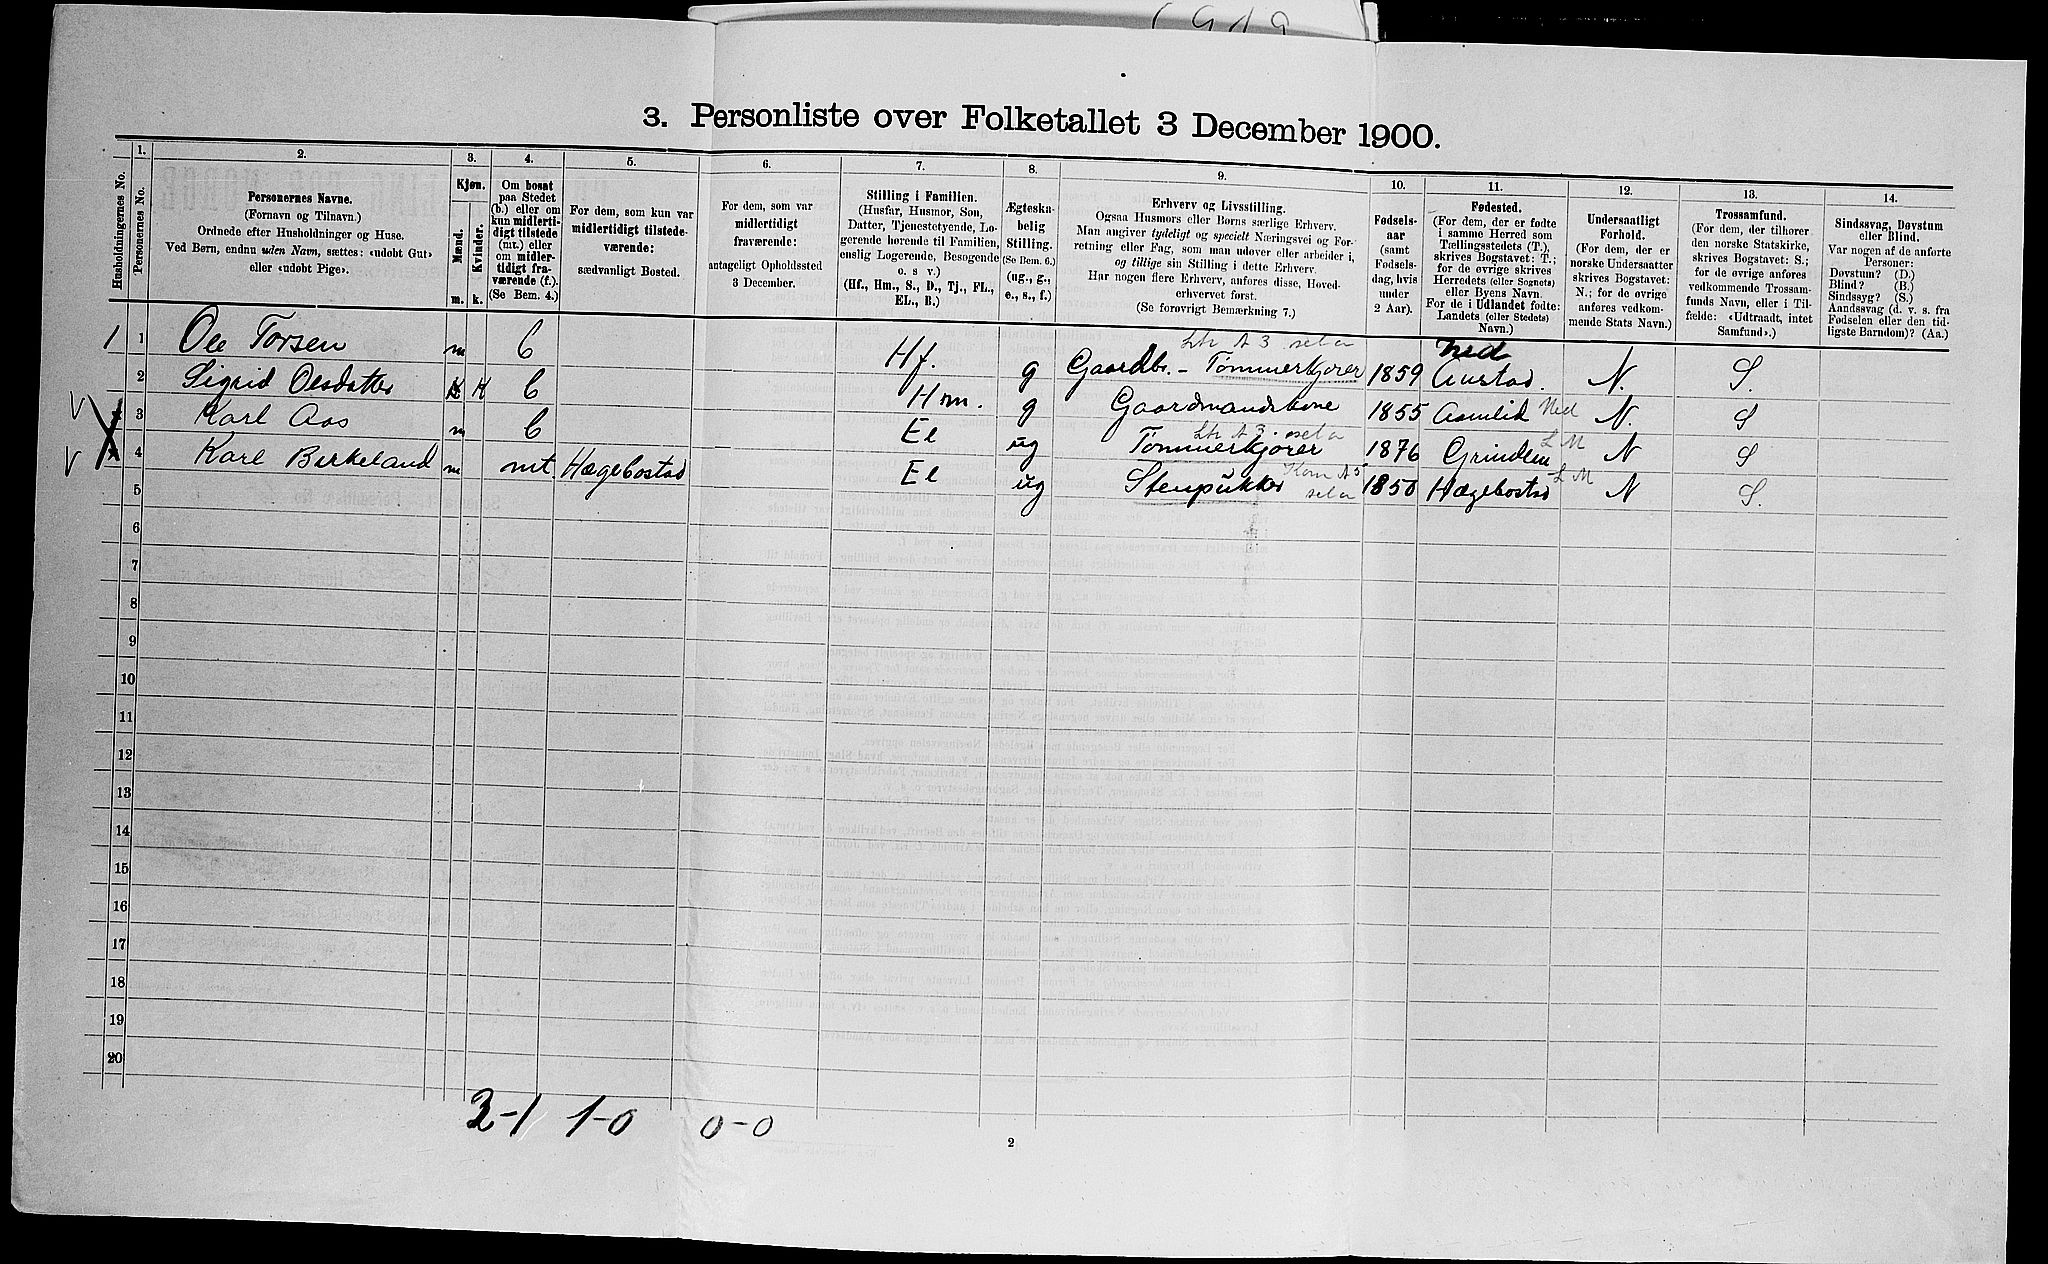 1919
3. Personliste over Folketallet 3 December 1900.
Husholdningernes No.
1.
Personernes No.
2.
Personernes Navne.
(Fornavn og Tilnavn.)
Ordnede efter Husholdninger og Huse.
Ved Børn, endnu uden Navn, sættes: «udøbt Gut»
eller «udøbt Pige».
3.
Kjøn.
Mænd.
Kvinder.
m.
k.
4.
Om bosat
paa Stedet
(b.) eller om
kun midlerti-
digt tilstede
(mt.) eller
om midler-
tidigt fra-
værende (f.).
(Se Bem. 4.)
5.
For dem, som kun var
midlertidigt tilstede-
værende:
sædvanligt Bosted.
6.
For dem, som var
midlertidigt
fraværende:
antageligt Opholdssted
3 December.
7.
Stilling i Familien.
(Husfar, Husmor, Søn,
Datter, Tjenestetyende, Lo-
gerende hørende til Familien,
enslig Logerende, Besøgende
o. s v.)
(Hf., Hm., S., D., Tj., FL.,
EL., B.)
8.
Ægteska-
belig
Stilling.
(Se Bem. 6.)
(ug., g.,
e., s., f.)
9.
Erhverv og Livsstilling.
Ogsaa Husmors eller Børns særlige Erhverv.
Man angiver tydeligt og specielt Næringsvei og For-
retning eller Fag, som man udøver eller arbeider i,
og tillige sin Stilling i dette Erhverv.
Har nogen flere Erhverv, anføres disse, Hoved-
erhvervet først.
(Se forøvrigt Bemærkning 7.)
10.
Fødsels-
aar
(samt
Fødsels-
dag, hvis
under
2 Aar).
11.
Fødested.
(For dem, der er fødte
i samme Herred som
Tællingsstedets (T.),
skrives Bogstavet: T.;
for de øvrige skrives
Herredets (eller Sognets)
eller Byens Navn.
For de i Udlandet fødte:
Landets (eller Stedets)
Navn.)
12.
Undersaatligt
Forhold.
(For dem, der er
norske Undersaatter
skrives Bogstavet:
N.; for de øvrige
anføres vedkom-
mende Stats Navn.)
13.
Trossamfund.
(For dem, der tilhører
den norske Statskirke,
skrives Bogstavet: S.;
for de øvrige anføres
vedkommende Trossam-
funds Navn, eller i Til-
fælde: «Udtraadt, intet
Samfund».)
14.
Sindssvag, Døvstum
eller Blind.
Var nogen af de anførte
Personer:
Døvstum? (D.)
Blind? (B.)
Sindssyg? (S.)
Aandssvag (d. v. s. fra
Fødselen eller den tid-
ligste Barndom)? (Aa.)
1 1 Ole Torsen m b Hf. g Gaardbr. - Tømmerkjører 1859 Austad. N. S.
2 Sigrid Olsdatter K b Hm. g Gaardmandskone 1855 Aamlid Ned N. S
3 Karl Aas m b El ug Tømmerkjører 1876 Grindlen L M N S
4 Karl Birkeland m mt. Hægebostad El ug Stenpukker 1850 Hægebostad L M N S.
5
6
7
8
9
10
11
12
13
14
15
16
17
18
19
20
2-1 1-0 0-0
2